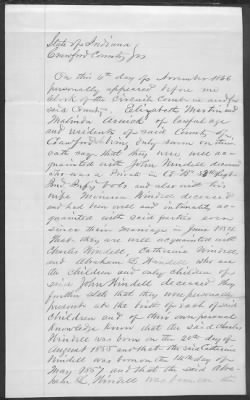 State of Indiana
Crawford County, ss
On this 6th day of November 1866
personally appeared before me
Clerk of the Circuit Court in and for
said County Elizabeth Martin and
Malinda of lawful age
and residents of said County of
Crawford being duly sworn on their
oath say that they were well ac-
quainted with John Windell deceased
who was a Private in Co. 38th Regt
Ind Inft Vols and also with his
wife Windell deceased
and had been well and intimately ac-
quainted with said parties ever
since their marriage in June 1854
That they are well acquainted with
Charles Windell, Catherine Windell
and Abraham L. Windell who are
the children and only children of
said John Windell deceased they
further state that they were personally
present at the birth of each of said
Children and of their own personal
knowledge know that the said Charles
Windell was born on the 20th day of
August 1855 and that the said Catherine
Windell was born on the 14th day of
May 1857 and that the said Abra-
ham L. Windell was born on the